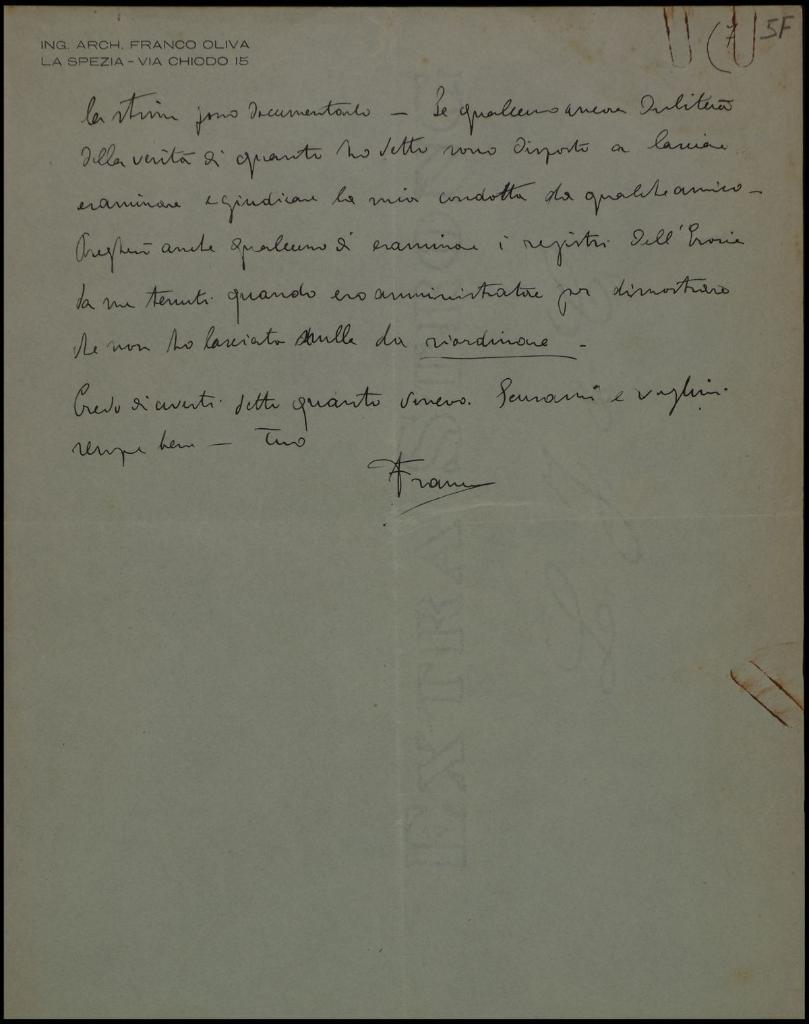 ING. ARCH. FRANCO OLIVA
LA SPEZIA - VIA CHIODO 15
(7 5F
la stima sono documentarlo — Se qualcuno ancora dubiterà
della verità di quanto ho detto sono disposto a lasciare
esaminare e giudicare la mia condotta da qualche amico —
Pregherò anche qualcuno di esaminare i registri dell'
da me tenuti quando ero amministratore per dimostrare
che non ho lasciato nulla da riordinare —
Credo di averti detto quanto dovevo. Scusami e voglimi
sempre bene — Tuo
Franco
EXTRA STRONG